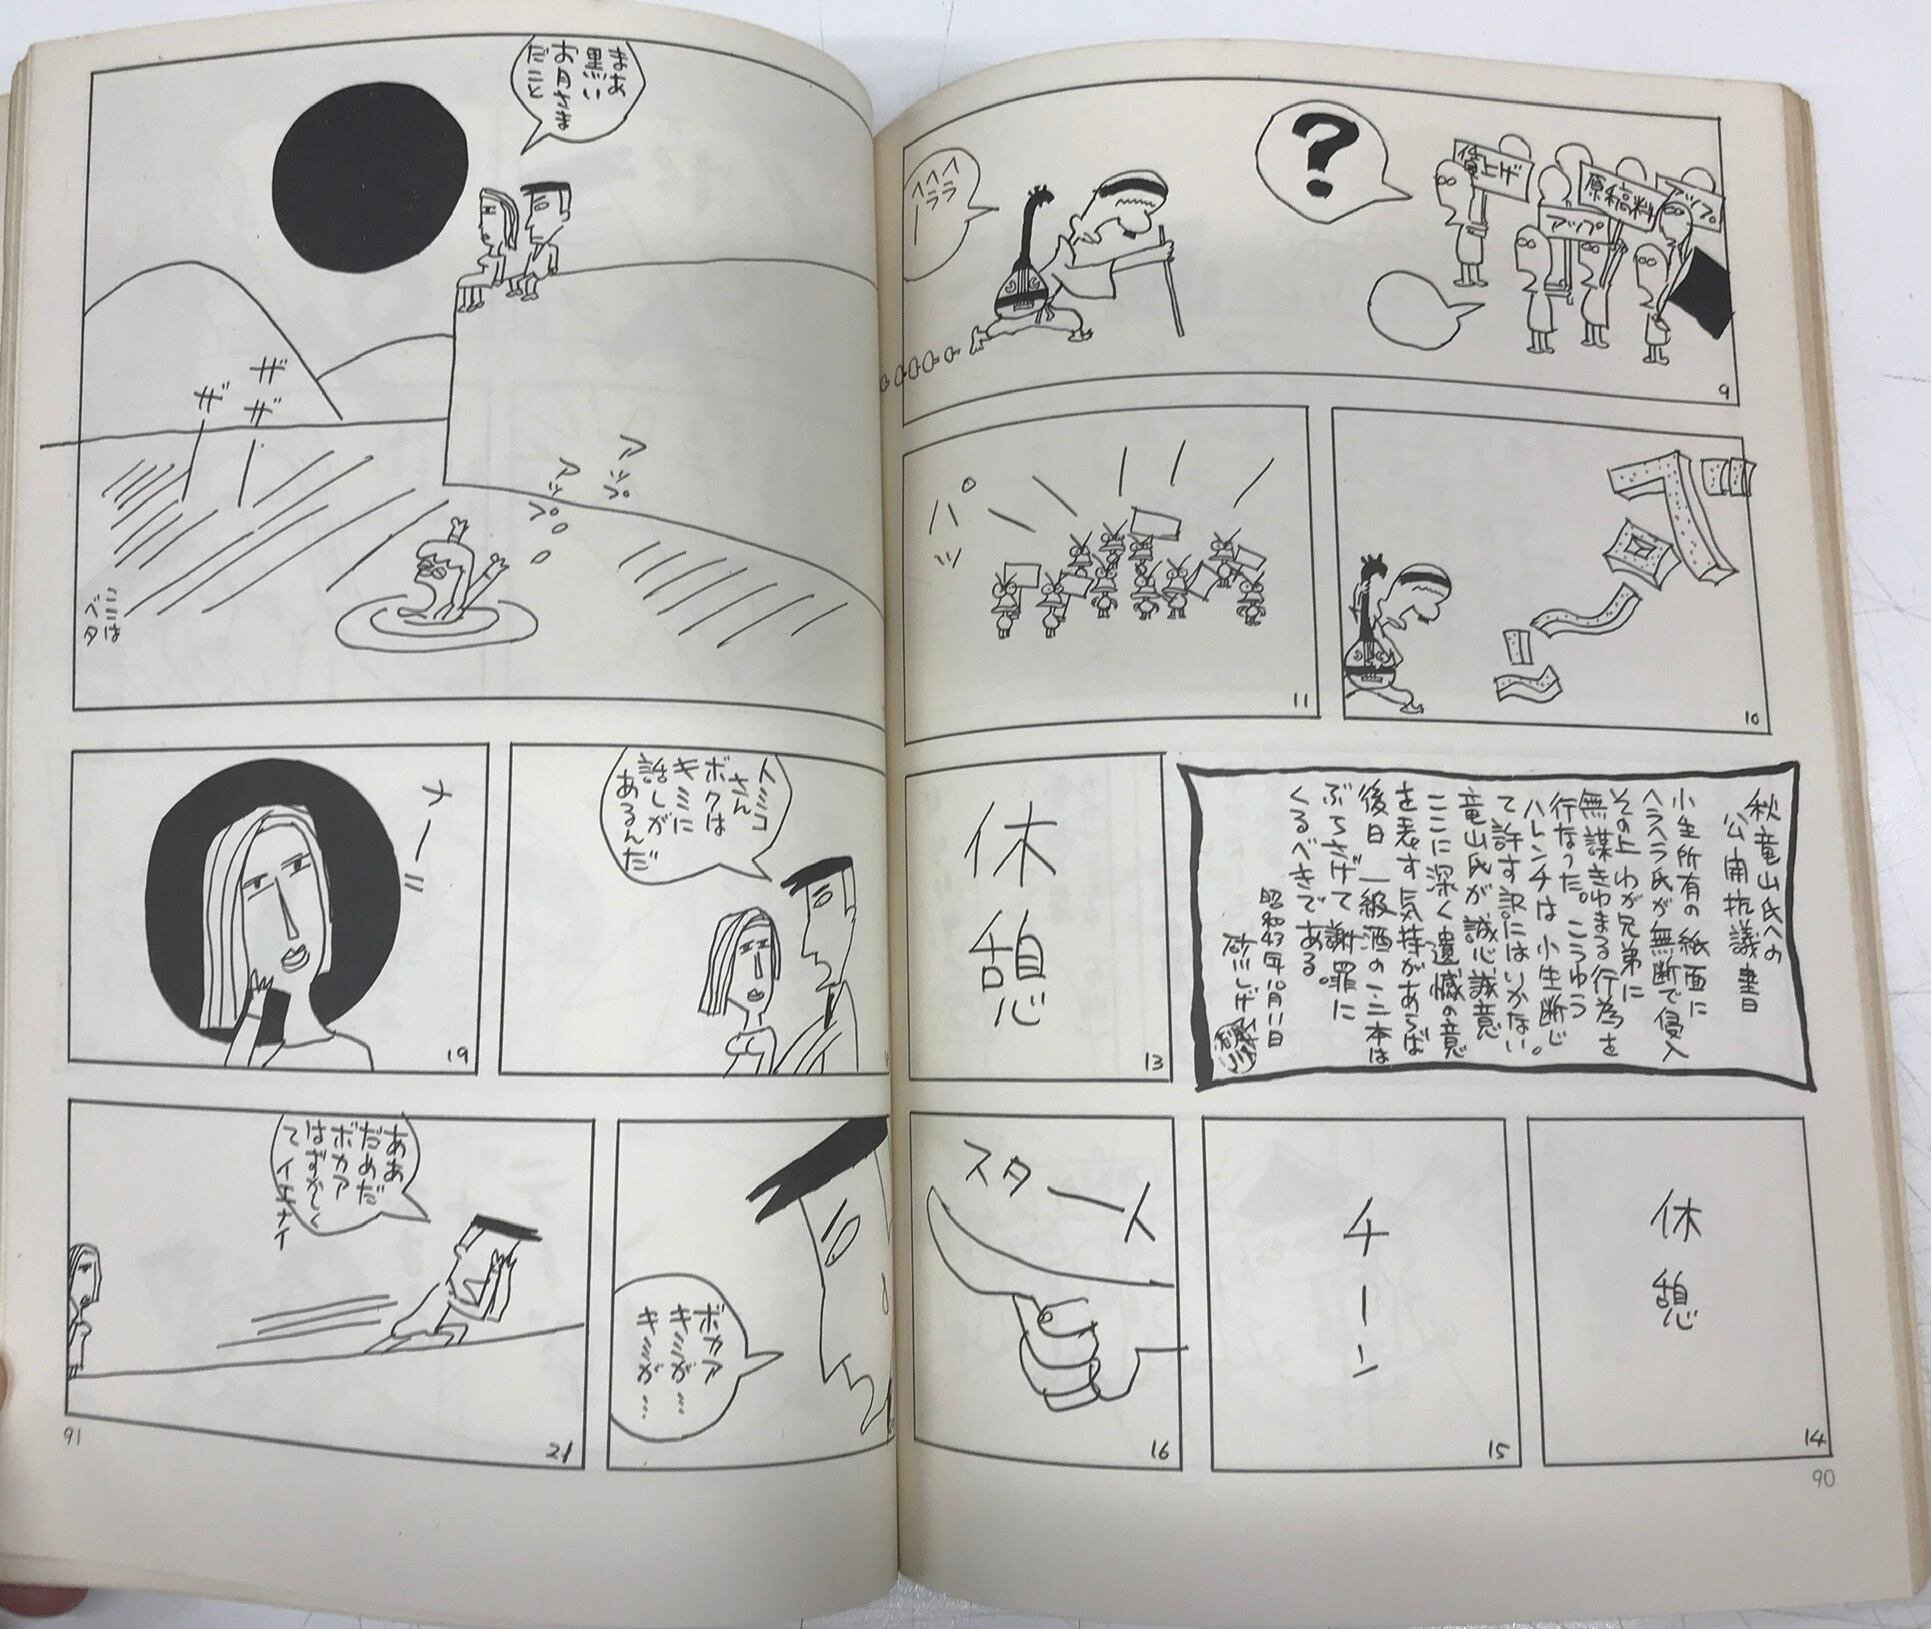 ?
賃上ゲ
原稿料
アップ
アップ
ヘヘヘ
ララ
ー
9
10
パッ
11
秋竜山氏への
公開抗議書
小生所有の紙面に
ヘラヘラ氏が無断で侵入
その上わが兄弟に
無謀きわまる行為を
行なった。こうゆう
ハレンチは小生断じ
て許す訳にはいかない。
竜山氏が誠心誠意
ここに深く遺憾の意
を表す気持があらば
後日一級酒の二三本は
ぶらさげて謝罪に
くるべきである。
昭和43年10月11日
砂川しげ
休憩
13
休憩
14
チーン
15
スタート
16
90
まあ
黒い
お月さま
だこと
ザ
ザ
ザ
アップ
アップ
トミコ
さん
ボクは
キミに
話しが
あるんだ
ナーニ
19
ボカア
キミが…
キミが…
ああ
だめだ
ボカア
はずかしく
てイケナイ
21
91